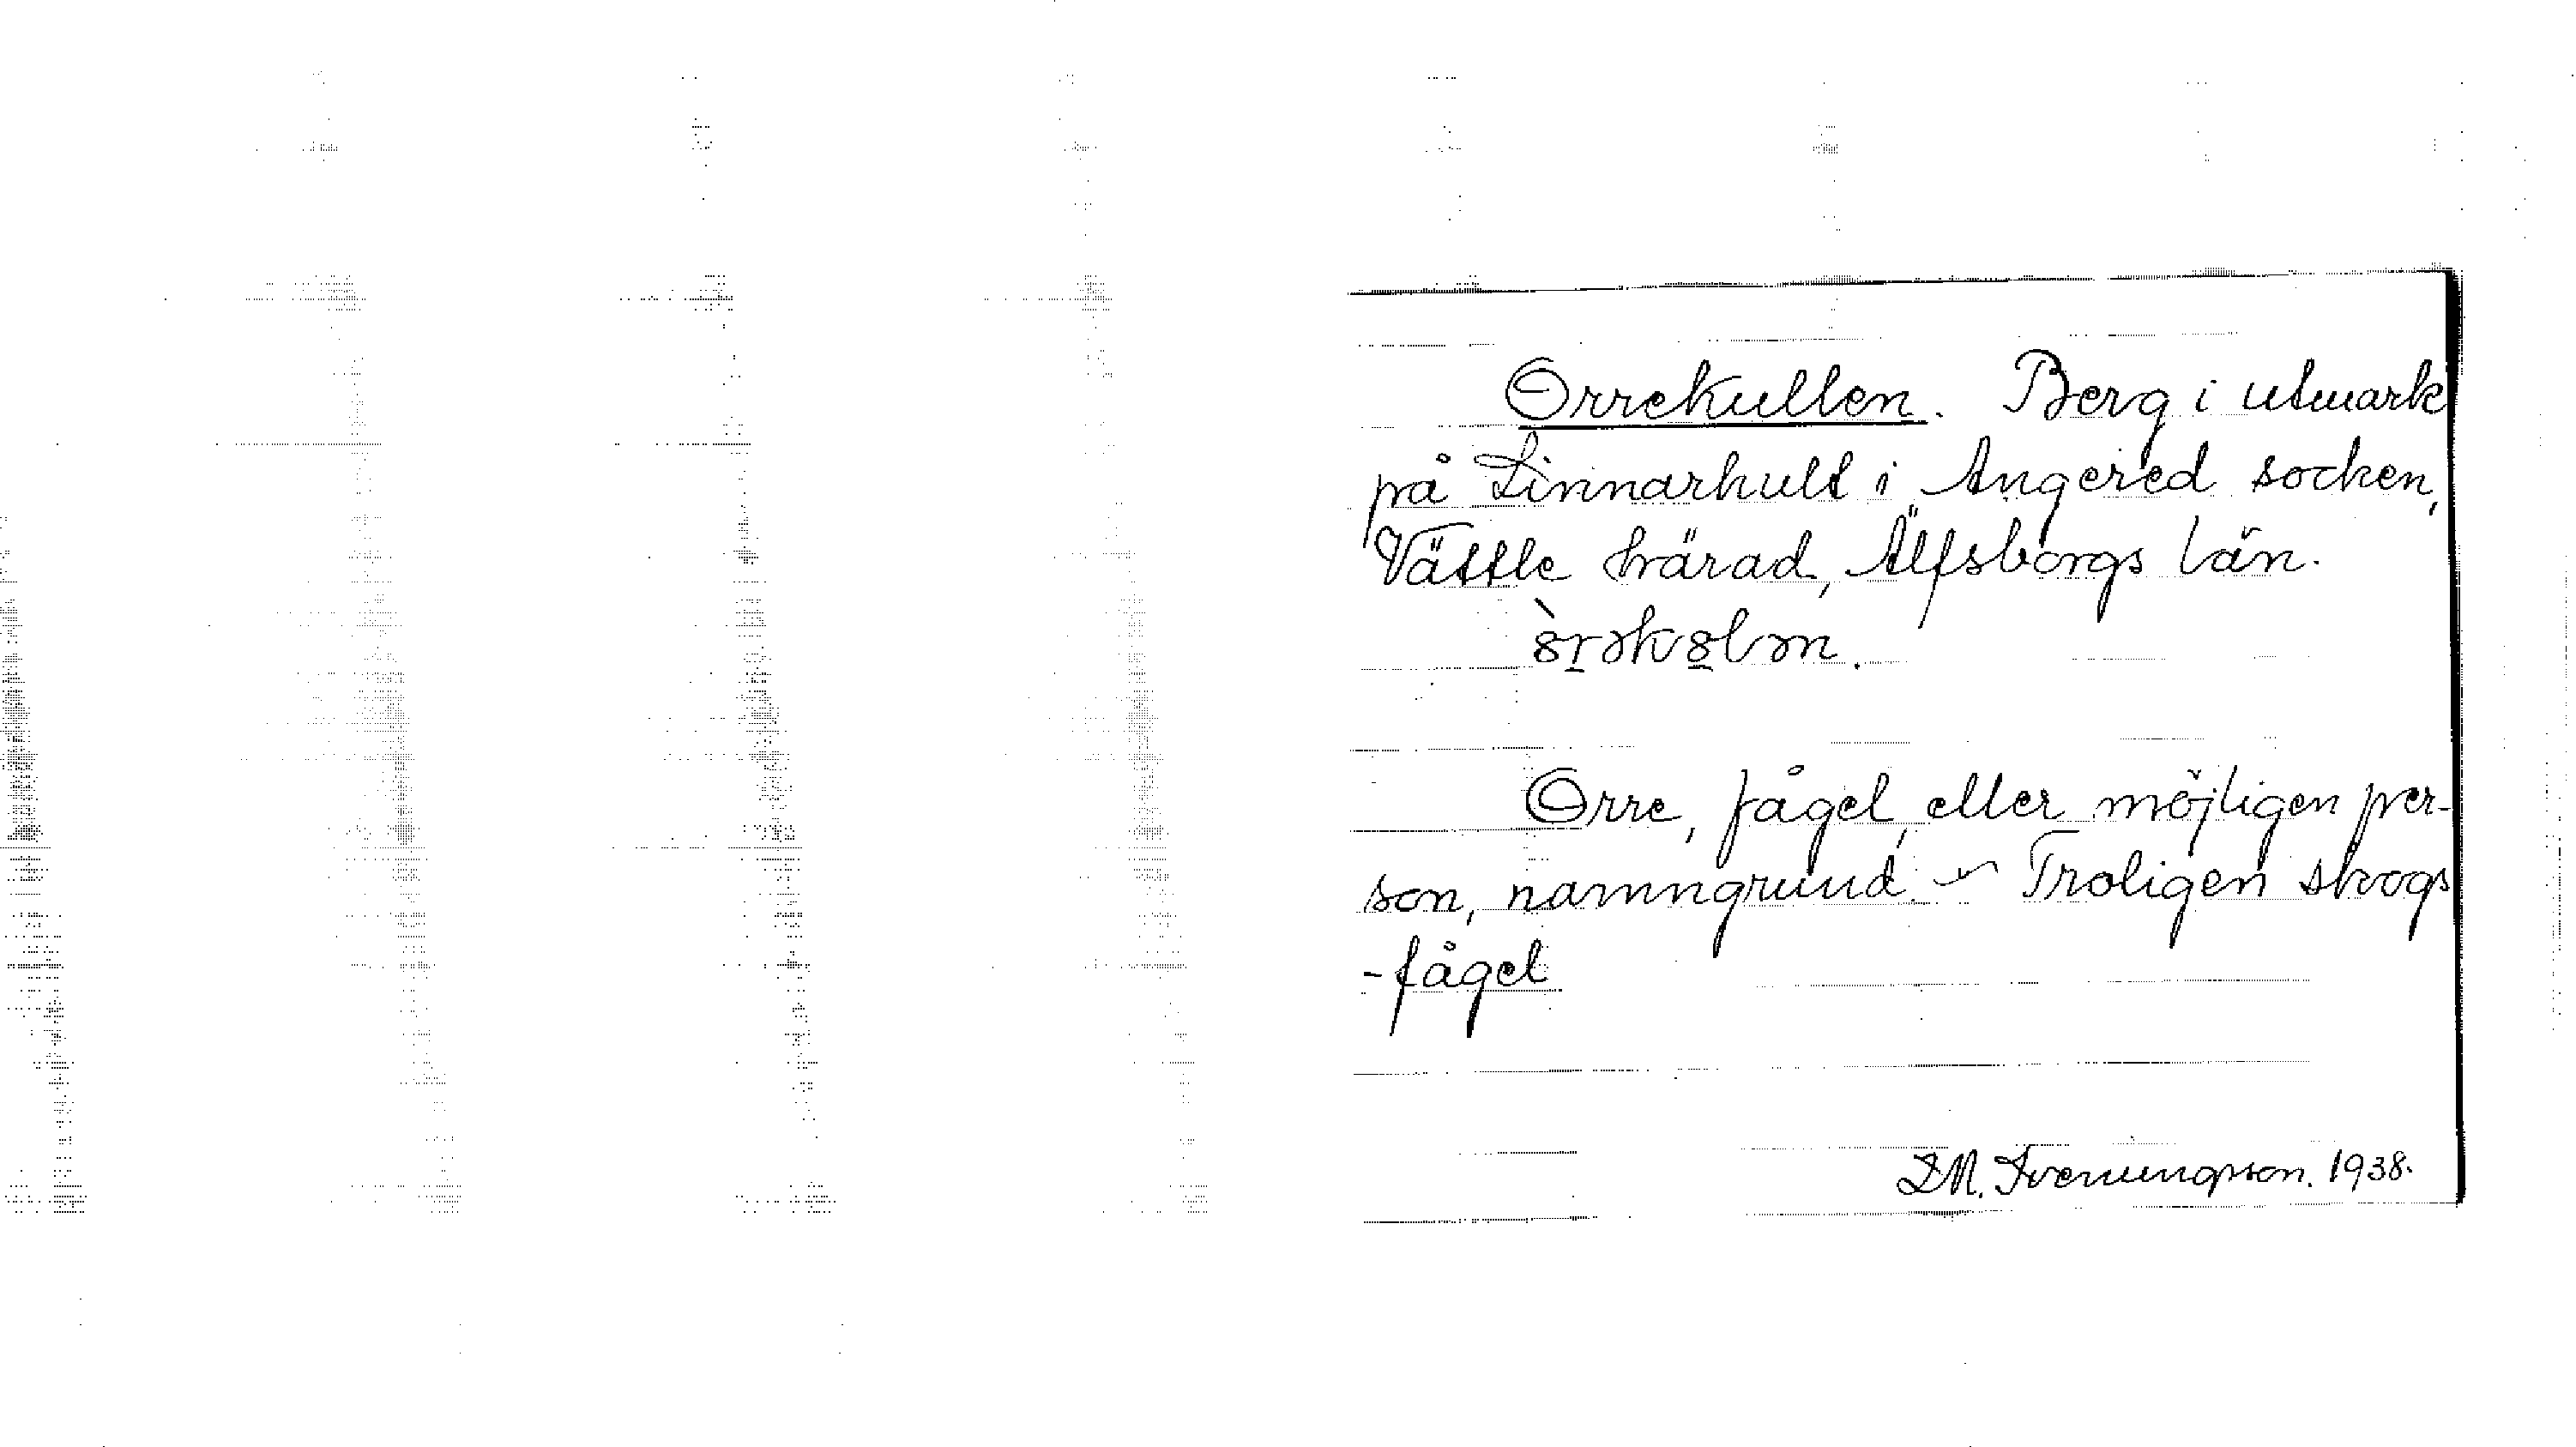 Orrekullen. Berg i utmark
på Linnarhult i Angered socken,
Vättle härad, Älfsborgs län.
Orre, fågel, eller möjligen per-
son, namngrund. – Troligen skogs
-fågel
1938.